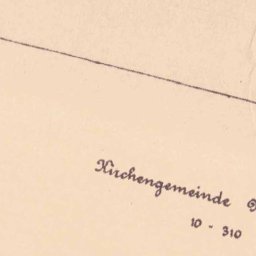 Kirchengemeinde
10 - 310